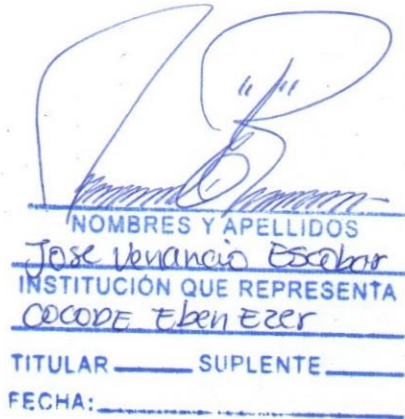 NOMBRES Y APELLIDOS
Jose Venancio Escobar
INSTITUCIÓN QUE REPRESENTA
COCODE Eben Ezer
TITULAR______ SUPLENTE______
FECHA:______